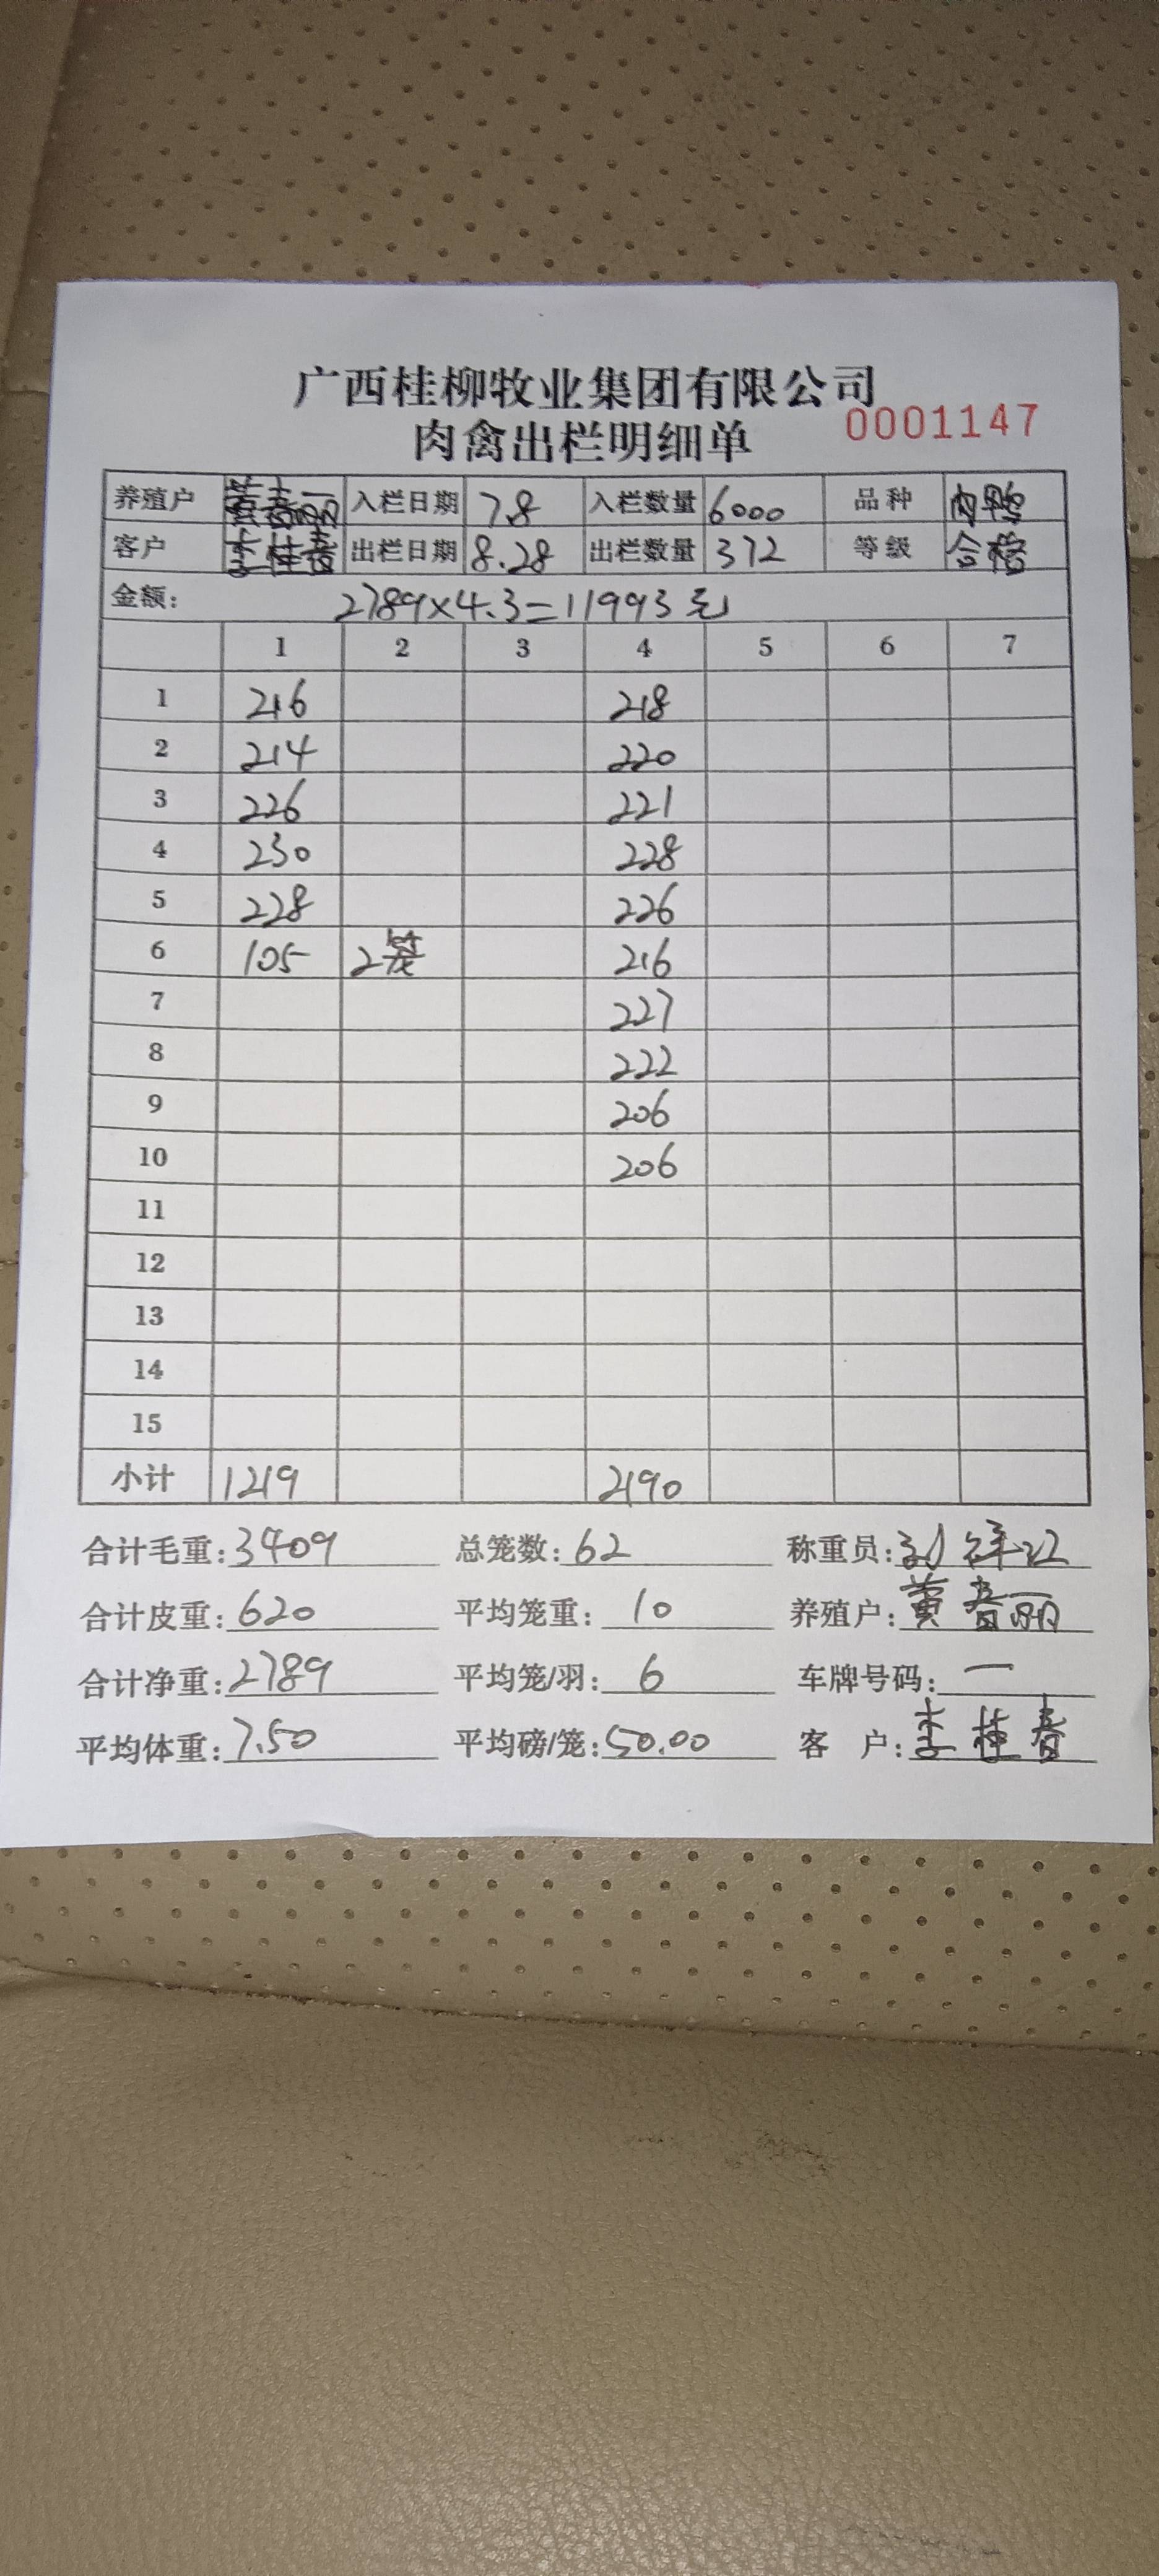 广西桂柳牧业集团有限公司
肉禽出栏明细单 0001147
养殖户 黄春丽 入栏日期 7.8 入栏数量 6000 品种 肉鸭
客户 李桂春 出栏日期 8.28 出栏数量 372 等级 合格
金额: 2789×4.3=11993元
1 2 3 4 5 6 7
1 216 218
2 214 220
3 226 221
4 230 228
5 228 226
6 105 2笼 216
7 227
8 222
9 206
10 206
11
12
13
14
15
小计 1219 2190
合计毛重: 3409 总笼数: 62 称重员: 刘
合计皮重: 620 平均笼重: 10 养殖户: 黄春丽
合计净重: 2789 平均笼/羽: 6 车牌号码: 一
平均体重: 7.50 平均磅/笼: 50.00 客 户: 李桂春